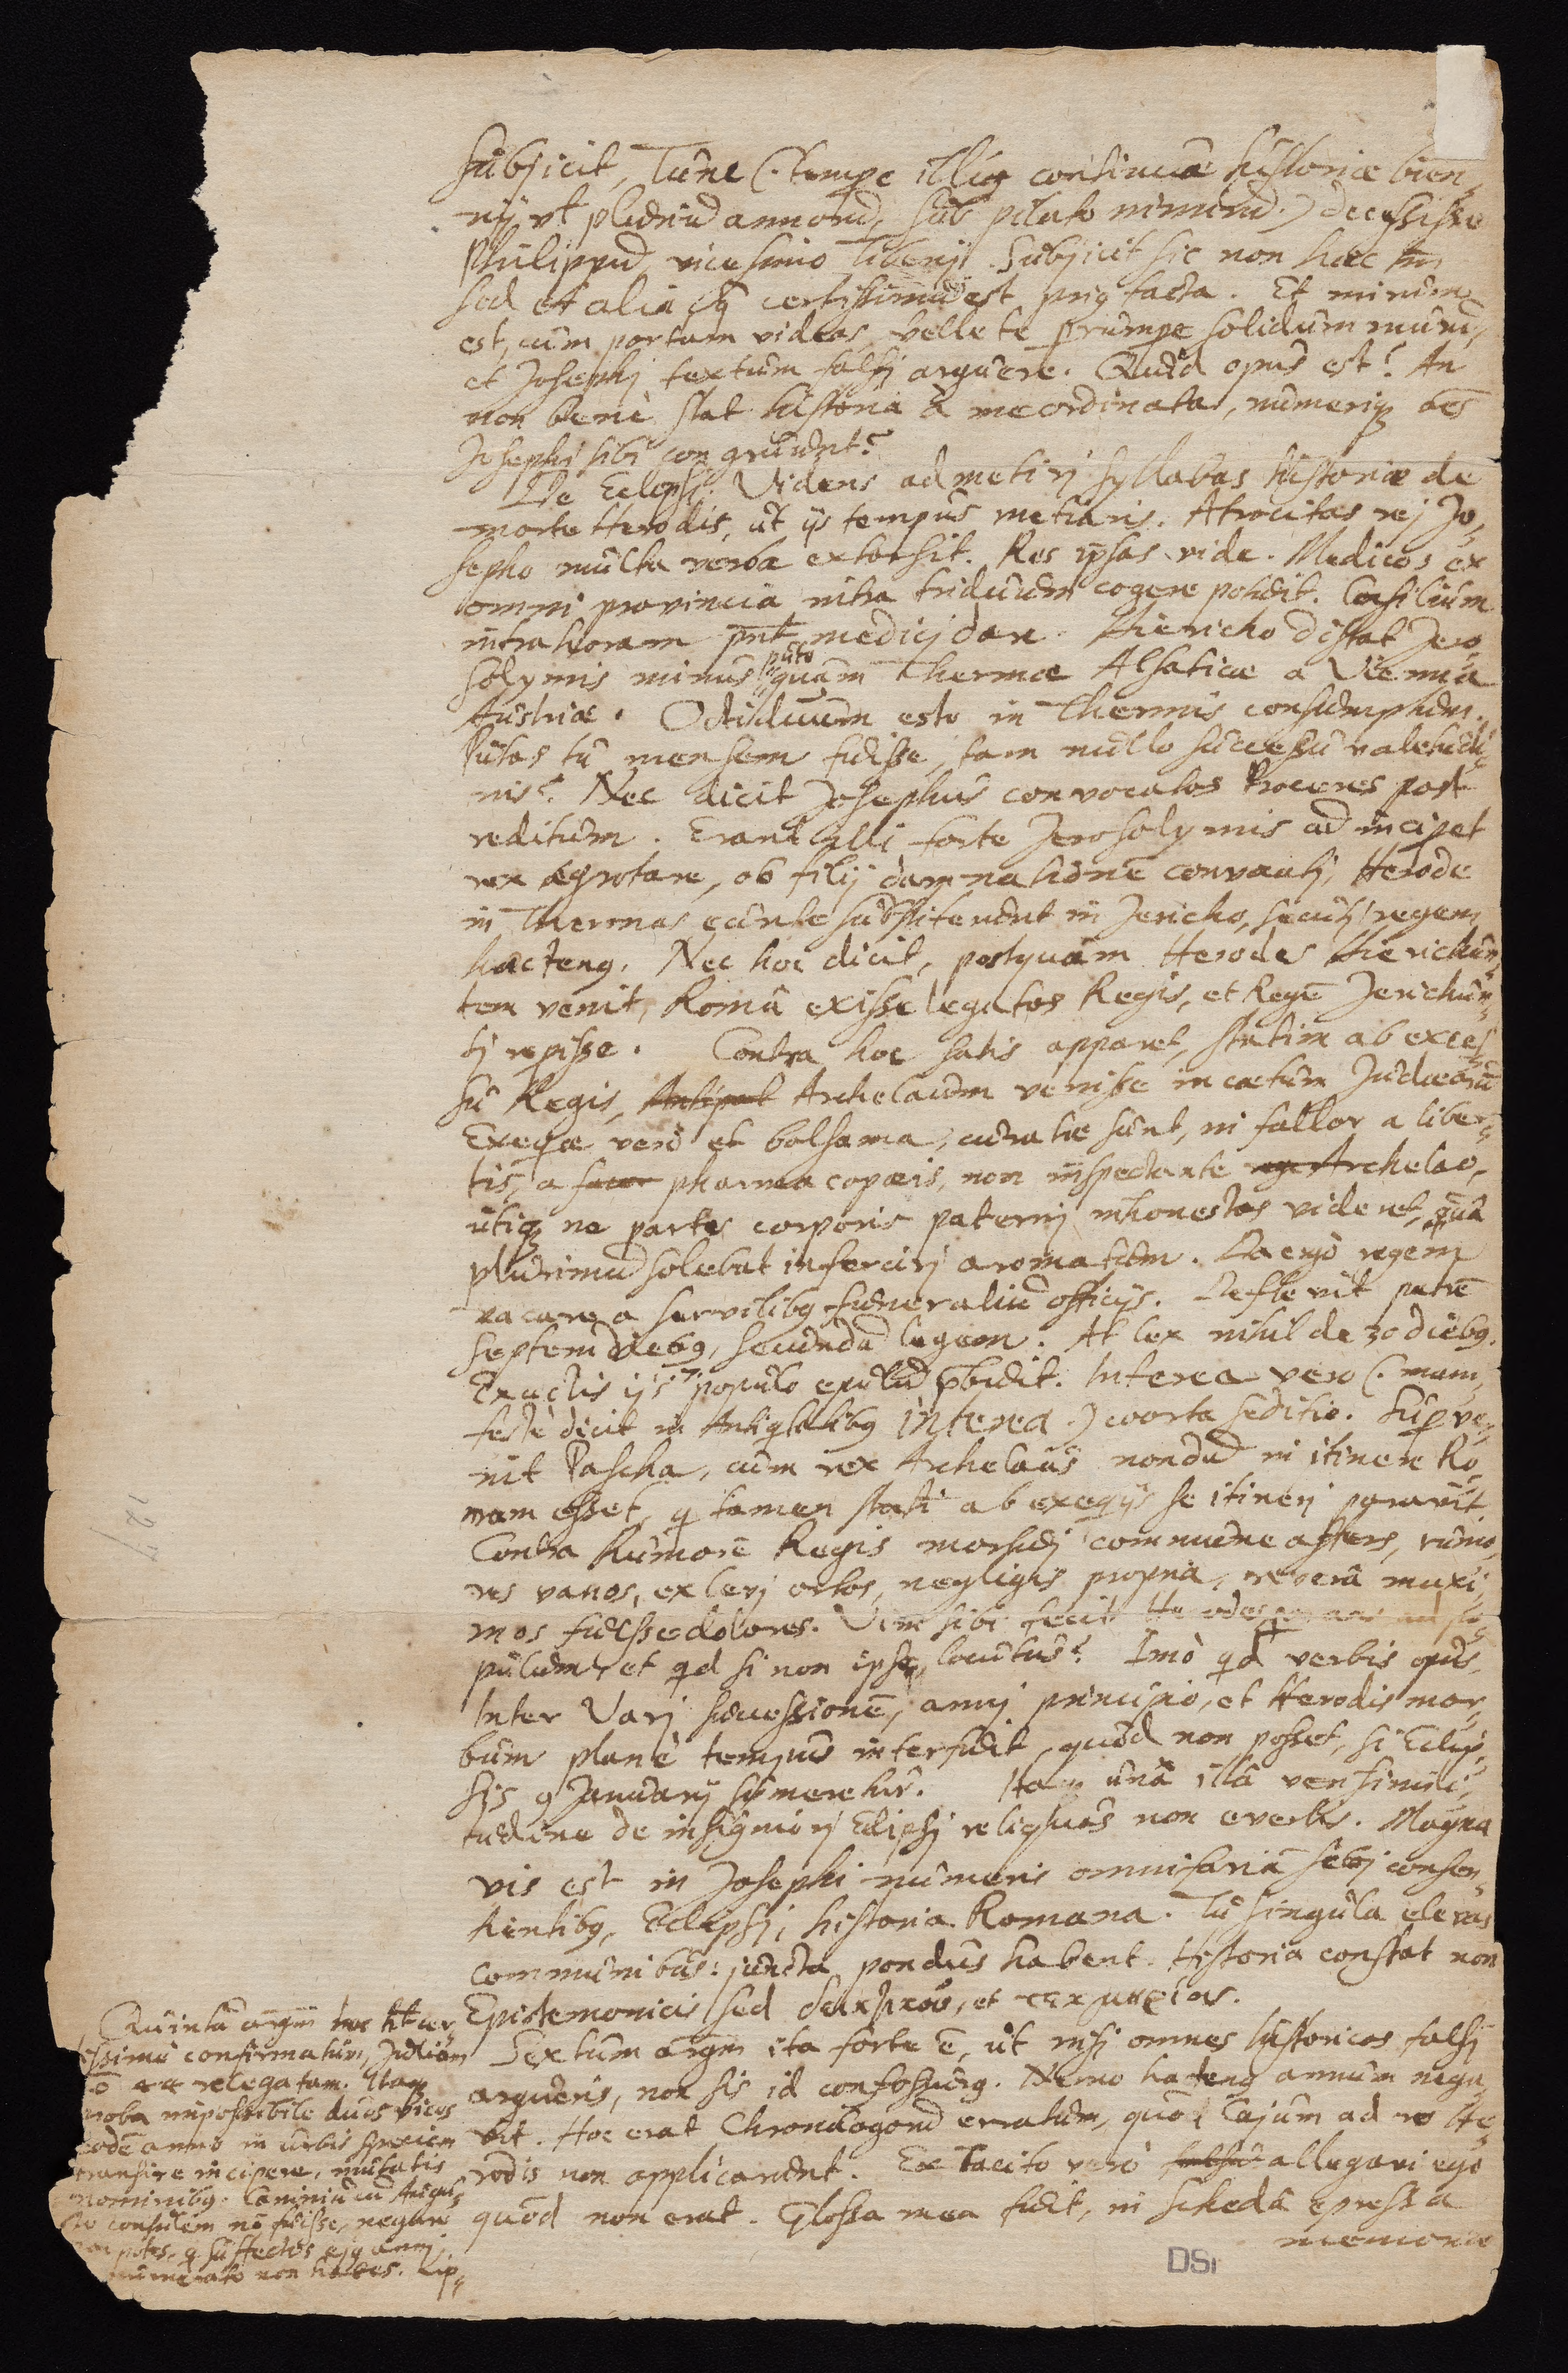 subjicit, Tunc (: nempe illius continuae historiae bien-
nij vt plurimũ annorũ, sub pilato nimirũ :) decessisse
Philippũ vicesimo Tiberij. Subjicit sic non haec tm̃
sed et alia q̃ certissimũ est prius facta. Et mirum
est, cum portam videas, velle te prumpe solidum murũ,
et Josephj textum falsj arguere. Quid opus est? An
non benè stat historia à me ordinata, numerique oẽs
Josephj sibi congruunt?
De Eclipsi. Videris admetirj syllabas historiae de
morte Herodis, ut ijs tempus metiaris. Atrocitas rej Jo-
sepho multa verba extorsit. Res ipsas vide. Medicos ex
omni provincia intra triduum cogere potuit. Consilium
intra horam pñt medicj dare. Hiericho distat Jero-
solymis minus puto quam Thermae Alsaticae a Vienna
Austriae. Octiduum esto in Thermis consumptum.
Putas tu mensem fuisse, tam nullo successu valetudi-
nis? Nec dicit Josephus convocatos Proceres post
reditum. Erant illi forte Jerosolymis cũ inciperet
rex aegrotare, ob filij damnationẽ convocatj, Herode
in Thermas eunte substiterunt in Jericho, secutj regem
hactenus. Nec hoc dicit, postquam Herodes Hierichun-
tem venit, Româ exisse legatos Regis, et Regẽ Jerichun-
tj repisse. Contra hoc satis apparet, statim ab exces-
su Regis, Antipat Archelaum venisse in caetum Judaeorũ
Exequiae verò et balsama, curatae sunt, ni fallor a liber-
tis, a pharmacopaeis, non inspectante rege Archelao,
utique ne partes corporis paternj inhonestas videret, quâ
plurimũ solebat infercirj aromatum. Da ergò regem
vacare a servilibus funeraliũ officijs. Deflevit patrẽ
septem diebus, secundũ legem. At lex nihil de 30 diebus.
Exactis ijs 7. populo epulũ pbuit. Interea vero (: mani-
festè dicit in Antiqtatibus interea :) coorta seditio. Superve-
nit Pascha, cum rex Archelaus nondũ in itinere Ro-
mam esset, q tamen statĩ ab exequijs se itinerj paravit
Contra humorẽ Regis morbidj commune affers, rumo-
res vanos, ex levj ortos, negligis propria, reverâ maxi-
mos fuisse dolores. Vim sibi fecit Herodes po-
pulum, et qd si non ipse locutus? Imò qd verbis opus.
Inter Varj successionẽ, annj principio, et Herodis mor-
bum planè tempus interfuit, quod non posset, si Eclip-
sis 9 Januarij sumeretur. Itaque unâ illâ verisimili-
tudine de insigniorj Eclipsj reliquas non evertis. Magna
vis est in Josephi numeris omnifariã sibj consen-
tientibus, Eclipsj, historia Romana. Tu singula elevas
communibus: juncta pondus habent. Historia constat non
Epistemonicis sed, et τεκμηρίοις.
Sextum argm̃ ita forte ẽ, ut nisi omnes historicos falsj
argueris, non sis id confossurus. Nemo hactenus annum nega-
vit. Hoc erat Chronologorũ erratum, quod Cajum ad res He-
rodis non applicarunt. Ex Tacito verò falsũ allegavi ego
quod non erat. Glossa mea fuit, in schedâ expressa
memoriae
Quintũ argm̃ hoc cer-
tissimè confirmatum, Juliam
relegatam. Itaque
proba impossibile duas vices
eodẽ anno in urbis speciem
transire incipere, mutatis
nominibus. Caniniũ cũ Augus-
to consulem nõ fuisse, negare
non potes, q suffectos ejus annj
numerato non habes. Lip-
DSi